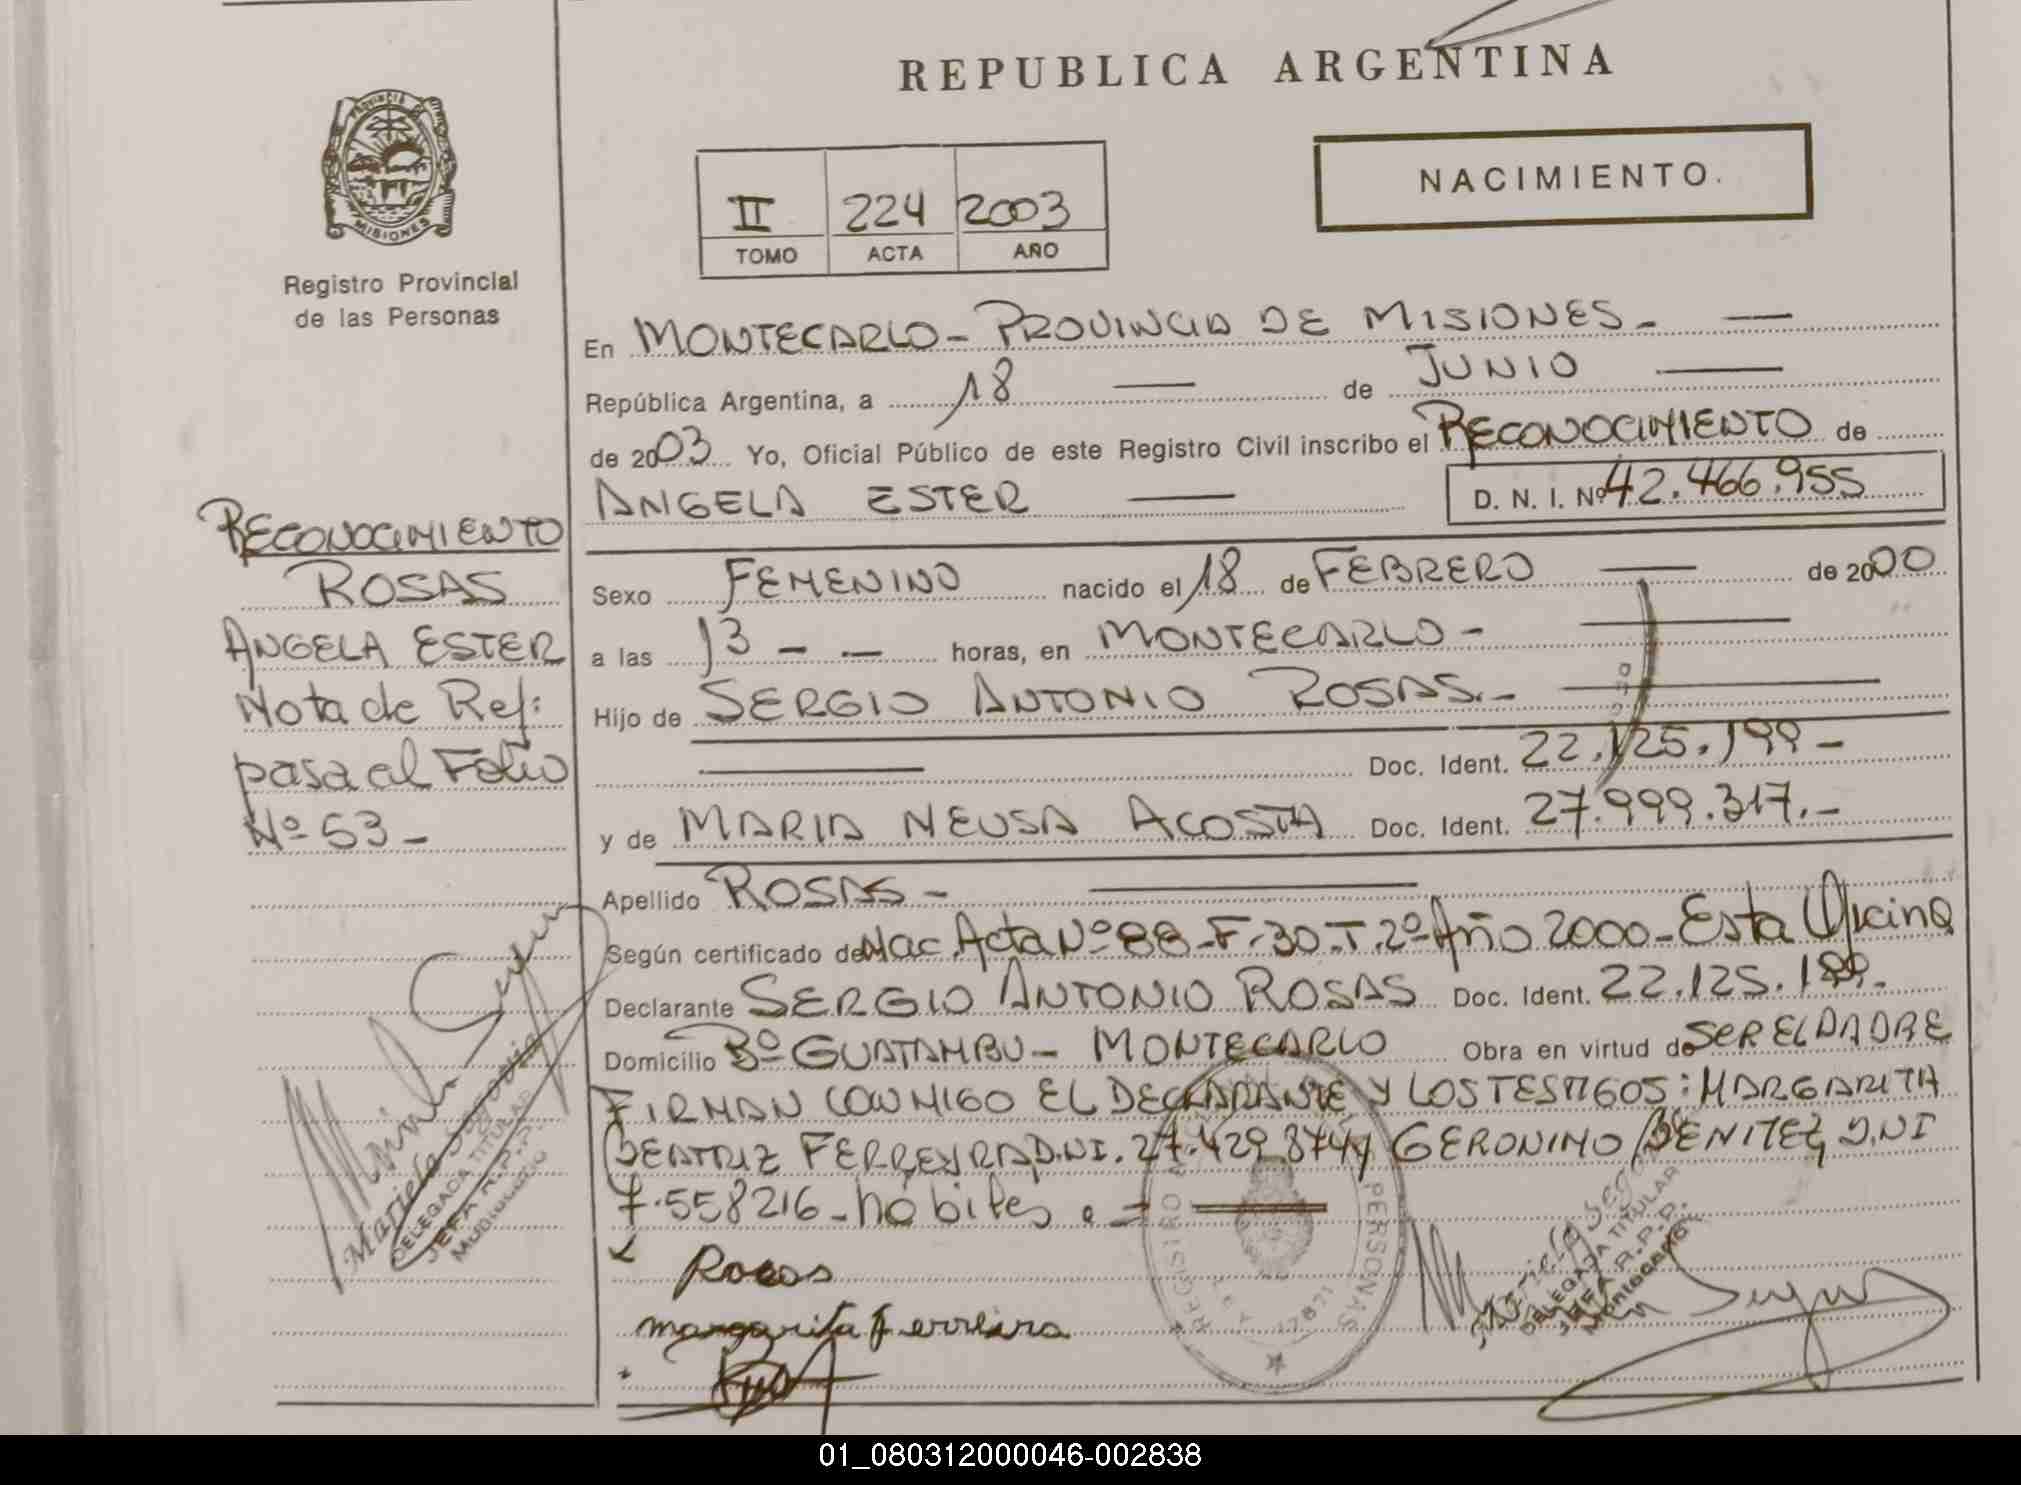 REPUBLICA ARGENTINA
PROVINCIA DE
MISIONES
Registro Provincial
de las Personas
NACIMIENTO.
II 224 2003
TOMO ACTA AÑO
En MONTECARLO - PROVINCIA DE MISIONES -
República Argentina, a 18 de JUNIO
de 2003 Yo, Oficial Público de este Registro Civil inscribo el RECONOCIMIENTO de
ANGELA ESTER D. N. I. Nº 42.466.955
RECONOCIMIENTO
ROSAS
ANGELA ESTER
Nota de Ref:
pasa al Folio
Nº 53 -
Sexo FEMENINO nacido el 18 de FEBRERO de 2000
a las 13 - - horas, en MONTECARLO -
Hijo de SERGIO ANTONIO ROSAS. -
Doc. Ident. 22.125.199 -
y de MARIA NEUSA ACOSTA Doc. Ident. 27.999.317. -
Apellido ROSAS -
Según certificado de Nac. Acta Nº 88 - F. 30 - T. 2º - Año 2000 - Esta Oficina
Declarante SERGIO ANTONIO ROSAS Doc. Ident. 22.125.199. -
Domicilio Bº GUATAMBU - MONTECARLO Obra en virtud de SER EL PADRE
FIRMAN CONMIGO EL DECLARANTE Y LOS TESTIGOS: MARGARITA
BEATRIZ FERREYRA D.NI. 27.429.874 y GERONIMO BENITEZ, D.NI
7.558216 - hábiles. -
Rosas
margarita Ferreira
REGISTRO PERSONAS
Mariela Segovia
DELEGADA TITULAR
JEFA R.P.P.
Montecarlo
DELEGADA TITULAR
JEFA R.P.P.
Montecarlo
01_080312000046-002838